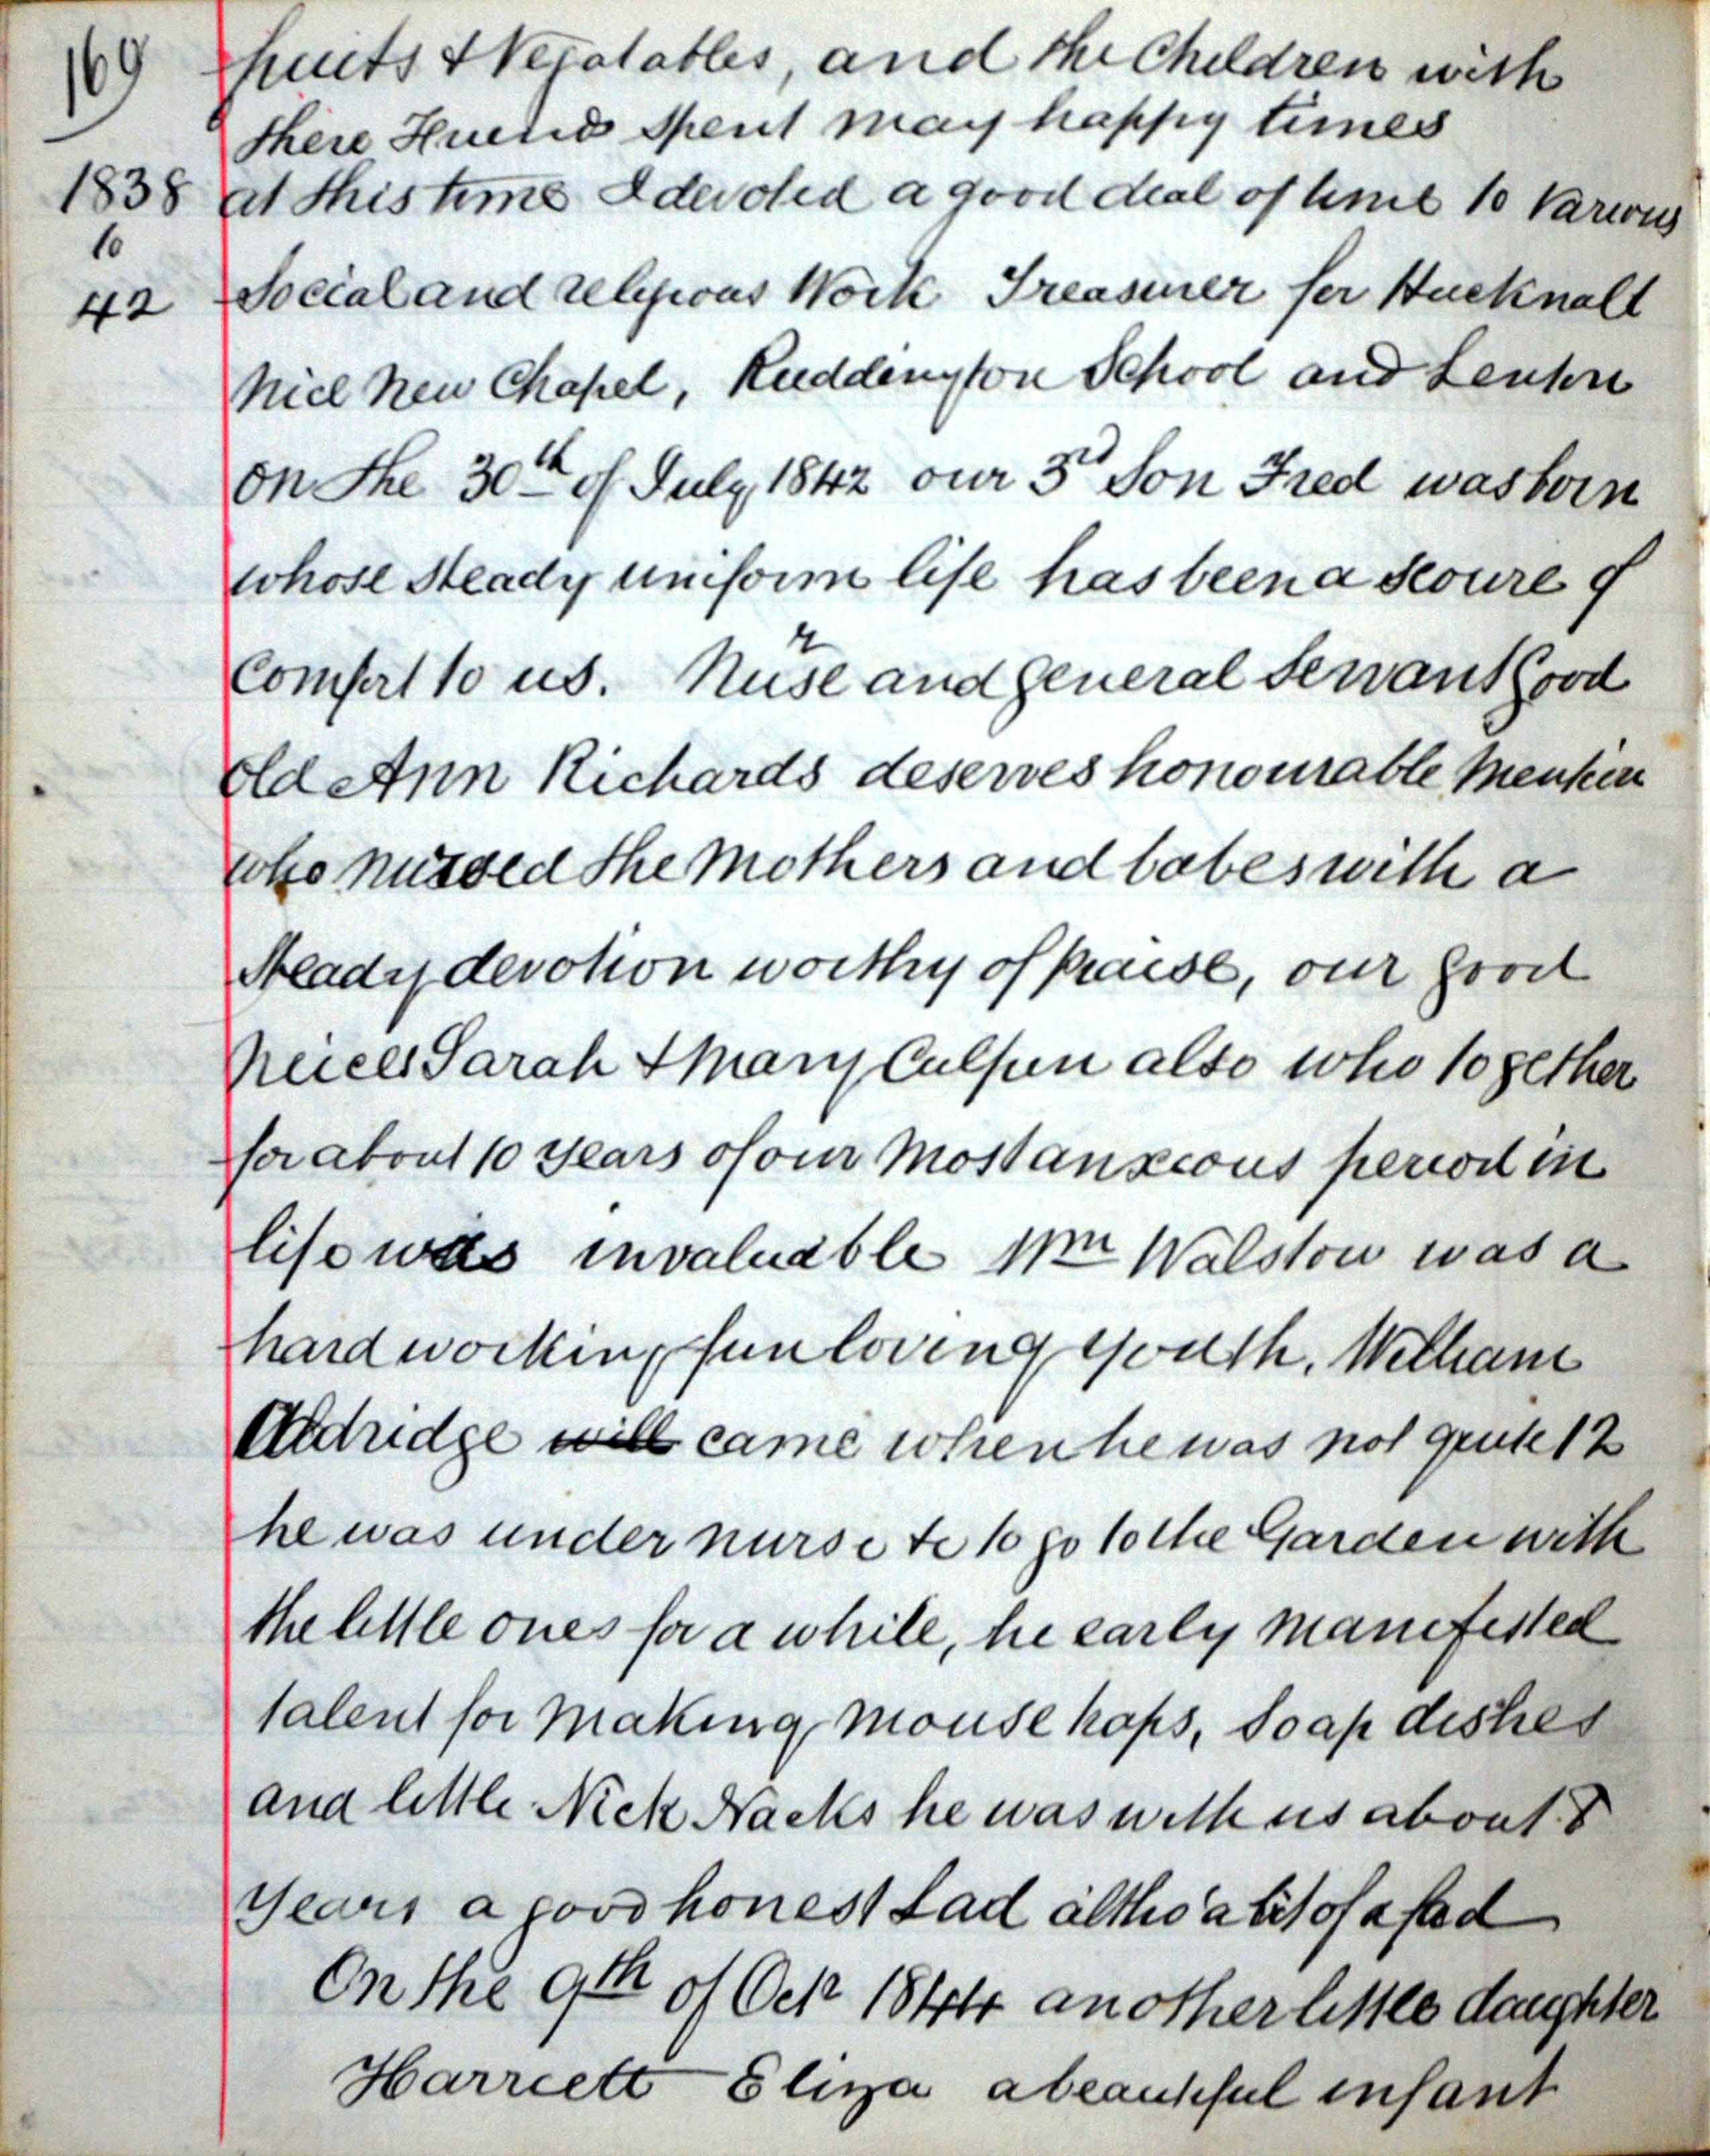 169
fruits & Vegatables, and the Children with
there Friends spent may happy times
1838 at this time I devoted a good deal of time to Various
to
42 Social and religious Work Treasurer for Hucknall
nice New Chapel, Ruddington School and Lenton
on the 30th of July, 1842 our 3d Son Fred was born
whose steady uniform life has been a scoure of
Comfort to us. Nurse and general Servant Good
old Ann Richards deserves honourable Mention
who nursed the Mothers and babes with a
Steady devotion worthy of praise, our good
Neices Sarah & Mary Culpin also who together
for about 10 years of our Most anxious period in
life was invaluable Wm Walston was a
hard working fun loving youth. William
Aldridge will came when he was not quite 12
he was under nurse te to go to the Garden with
the little ones for a while, he early Manifested
talent for Making mouse traps, Soap dishes
and little Nick Nacks he was with us about 8
Years a good honest Lad altho' a bit of a fad
On the 9th of Octr 1844 another little daughter
Harriett Eliza a beautiful infant